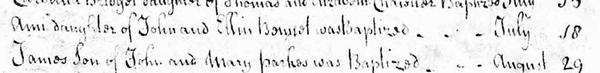 daughter of Thomas and Elizabeth Baptized July
Ann daughter of John and Ellin was Baptized . . . July 18
James Son of John and Mary Parkes was Baptized . . . August 29